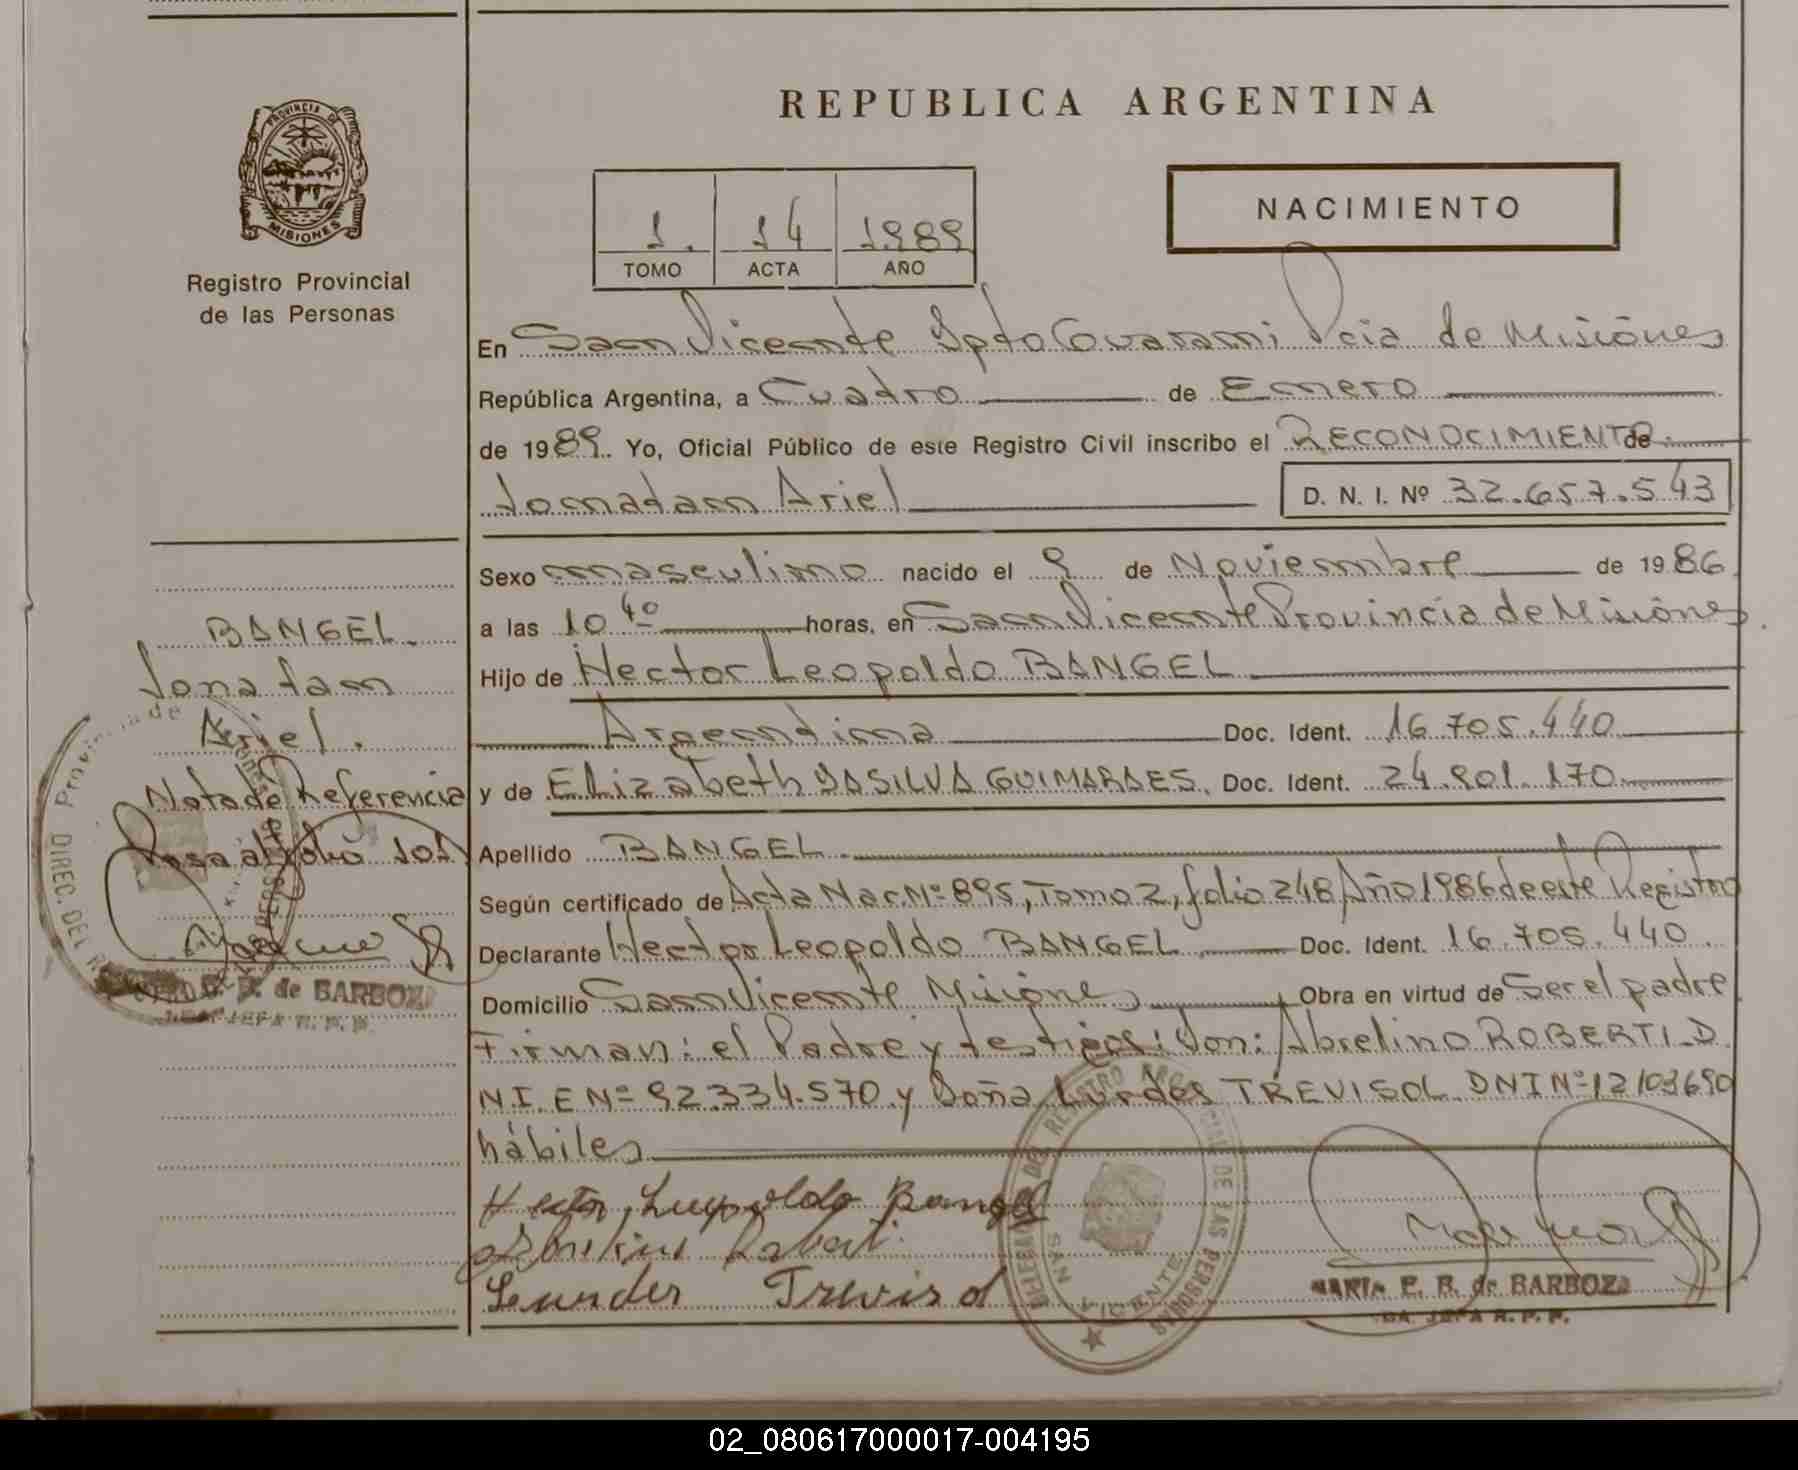 PROVINCIA DE
MISIONES
Registro Provincial
de las Personas
REPUBLICA ARGENTINA
1. 14 1989
TOMO ACTA AÑO
NACIMIENTO
En San Vicente Dpto Guarani Pcia de Misiónes
República Argentina, a Cuatro de Enero
de 1989. Yo, Oficial Público de este Registro Civil inscribo el RECONOCIMIENTO de
Jonatan Ariel D. N. I. Nº 32.657.543
Sexo masculino nacido el 9 de Noviembre de 1986
a las 10 40 horas, en San Vicente Provincia de Misiónes.
Hijo de Hector Leopoldo BANGEL
Argentina Doc. Ident. 16.705.440
y de Elizabeth DASILVA GUIMARAES. Doc. Ident. 24.901.170
Apellido BANGEL
Según certificado de Acta Nac. Nº 895, Tomo 2, folio 248 Año 1986 de este Registro
Declarante Hector Leopoldo BANGEL Doc. Ident. 16.705.440.
Domicilio San Vicente Misiónes Obra en virtud de Ser el padre
Firman: el Padre y testigos: Don: Abrelino ROBERTI_D
N.I. E Nº 92.334.570 y Doña Lurdes TREVISOL DNI Nº 12103690
hábiles
Hector Leopoldo Bangel
Abrelino Roberti
Lurdes Trevisol
MARIA E. B. de BARBOZA
JEFA R. P. P.
BANGEL.
Jonatan
Ariel.
Nota de Referencia
Pasa al folio 101
B. de BARBOZA
JEFA R. P. P.
Provincia de
DIREC. DEL
DELEGACION DEL REGISTRO PROVINCIAL DE LAS PERSONAS
SAN VICENTE
02_080617000017-004195